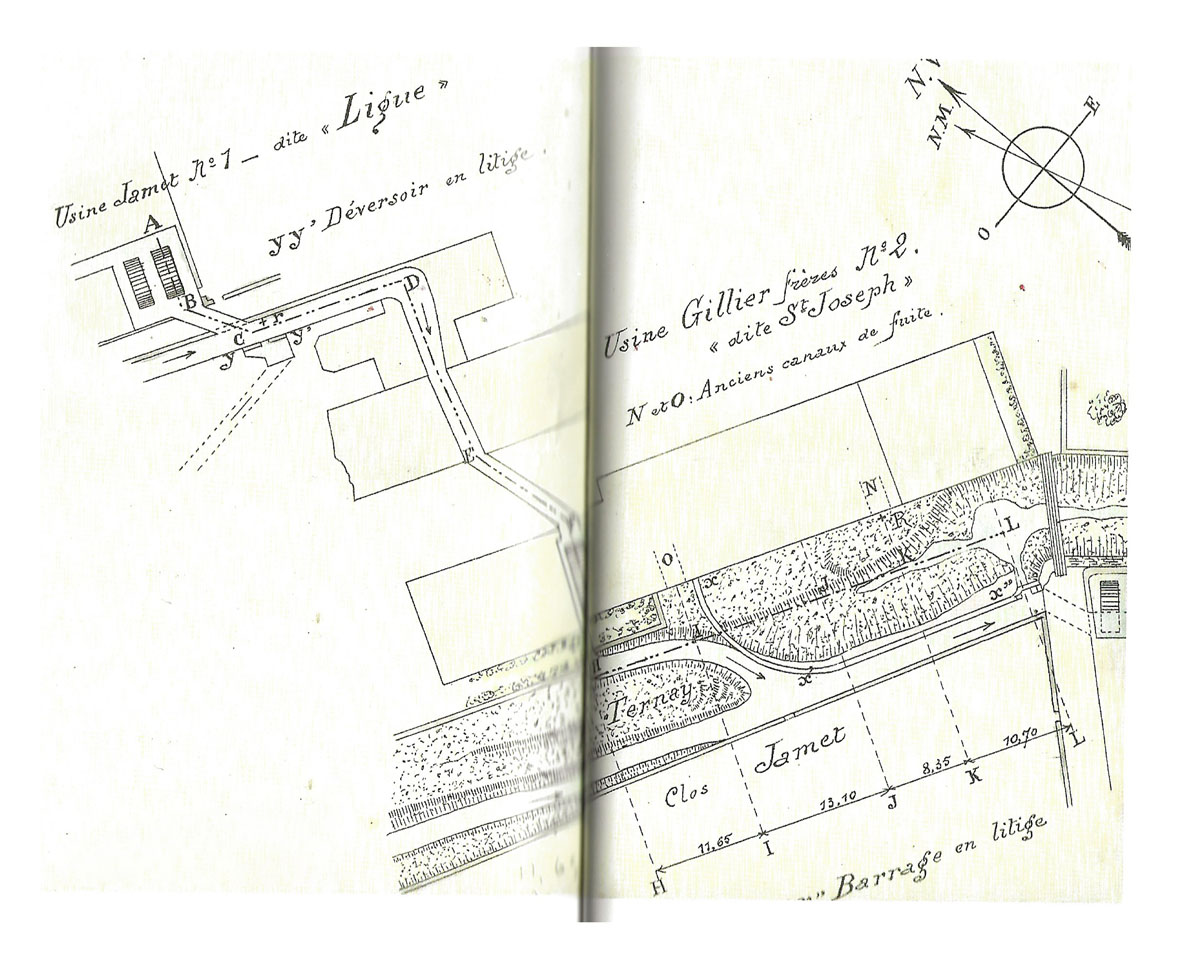 Usine Jamet No 1 _ dite « Ligue »
yy' Déversoir en litige.
A
B
C
+r
y
y'
D
E
N.V
N.M.
E
O
Usine Gillier frères No 2.
« dite St Joseph »
N et O: Anciens canaux de fuite.
N
R
L
O
x
J
K
x"
I
H
x'
Ternay
Jamet
Clos
11,65
13,10
8,35
10,70
H
I
J
K
L
Barrage en litige